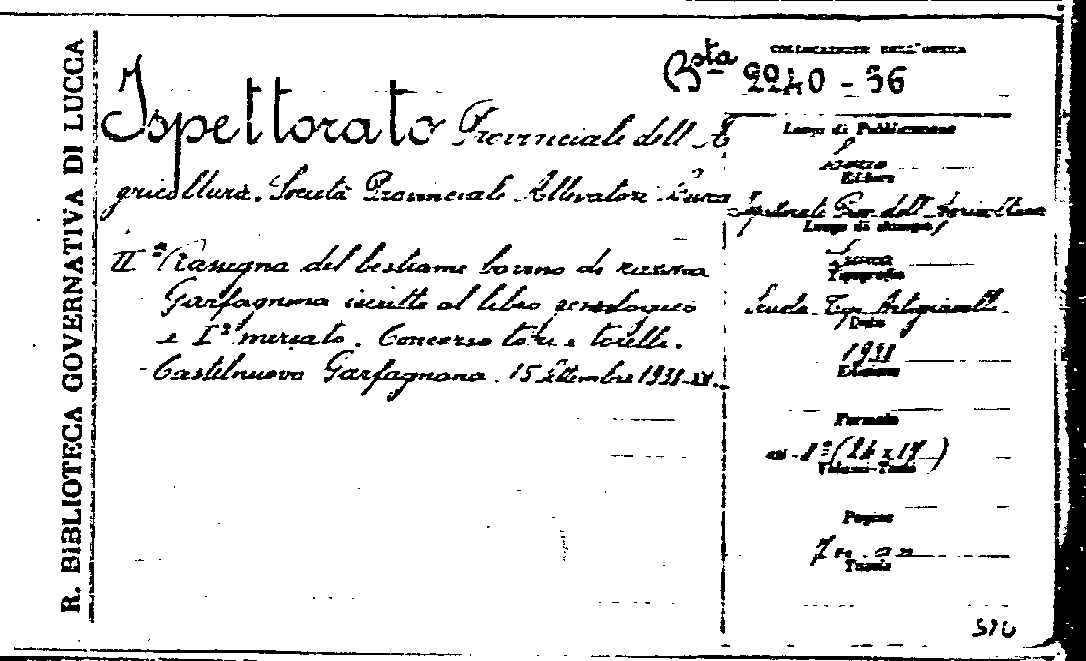 R. BIBLIOTECA GOVERNATIVA DI LUCCA
COLLOCAZIONE DELL'OPERA
Bsta 2240 - 36
Ispettorato Provinciale dell'A
gricoltura. Società Provinciale Allevatori Lucca
IIª Rassegna del bestiame bovino di razza
Garfagnina iscritto al libro genealogico
e Iº mercato. Concorso tori e torelli.
Castelnuovo Garfagnana. 15 Settembre 1931-IX.
Luogo di Pubblicazione
Lucca
Editore
Ispettorato Prov. dell'Agricoltura
Luogo di stampa
Lucca
Tipografia
Scuola Tip. Artigianelli
Data
1931
Edizione
Formato
in-8º (24 x 17)
Volume-Tomo
Pagine
7 n. n.
Tavole